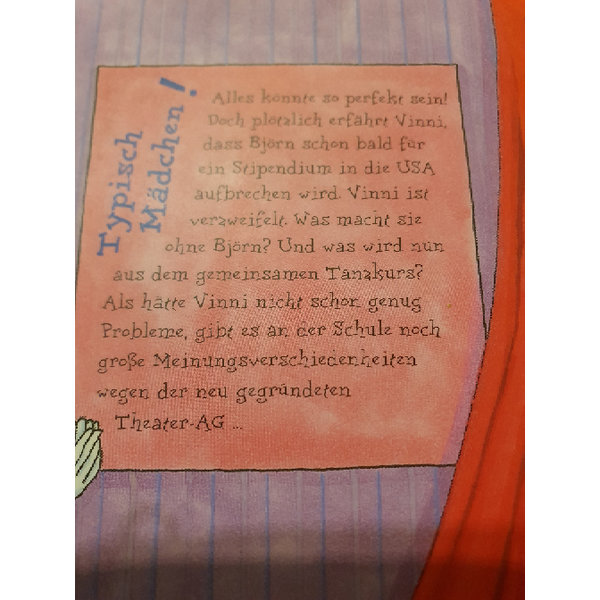 Typisch
Mädchen!
Alles könnte so perfekt sein!
Doch plötzlich erfährt Vinni,
dass Björn schon bald für
ein Stipendium in die USA
aufbrechen wird. Vinni ist
verzweifelt. Was macht sie
ohne Björn? Und was wird nun
aus dem gemeinsamen Tanzkurs?
Als hätte Vinni nicht schon genug
Probleme, gibt es an der Schule noch
große Meinungsverschiedenheiten
wegen der neu gegründeten
Theater-AG ...